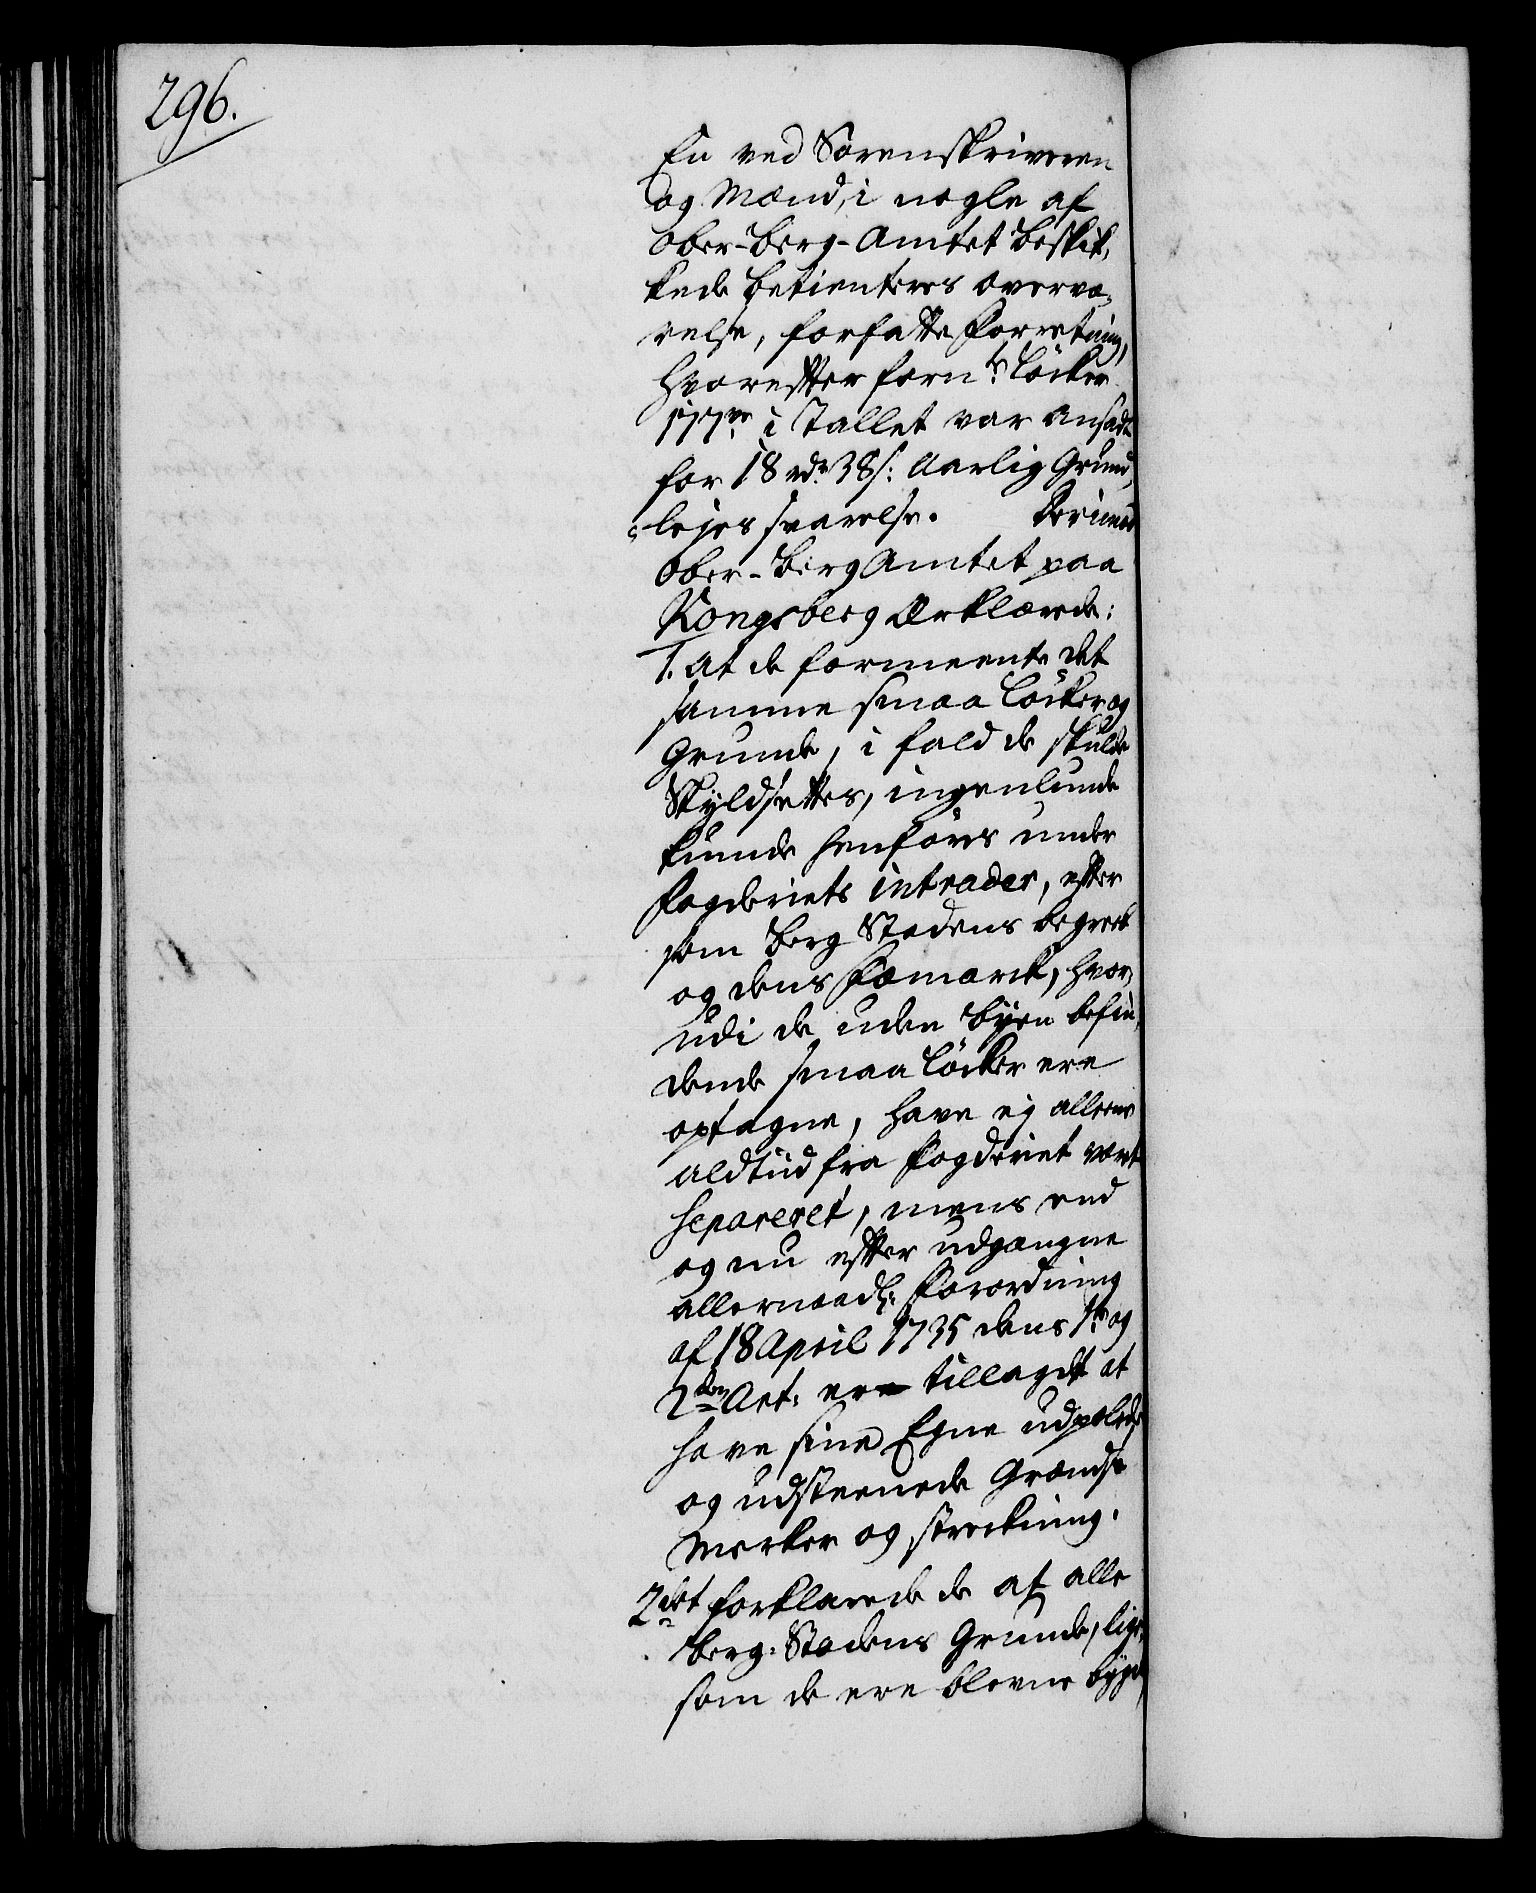 296.
En ved Sorenskriveren
og Mænd, i nogle af
Ober-Berg-Amtet beskik,
kede betienteres overvæ,
relse, forfatte Forretning,
hvorefter forn:te Löcker
177ve i Tallet var ansadt
for 18 rdr 38 s: Aarlig Grund,
lejes svarelse. Derimod
Ober-Berg Amtet paa
Kongsberg Erklærede:
1. At de formeente det
samme smaa Löcker og
Grunde, i fald de skulde
Skyldsettes, ingenlunde
kunde henföres under
Fogderiets intrader, efter
som Berg Stadens begreb
og dens Fæmarck, hvor,
udi de uden Byen befin,
dende smaa Löcker ere
optagne, have ej alleene
aldtiid fra Fogderiet vært
separeret, mens end
og nu efter udgangne
allernaad:e Forordning
af 18 April 1735 dens 1te og
2den Art: ere tillagdt at
have sine Egne udpælede
og udsteenede Grændse
Merker og streckning.
2det forklarede de at alle
Berg-Stadens Grunde, lige,
som de ere blevne bygde,